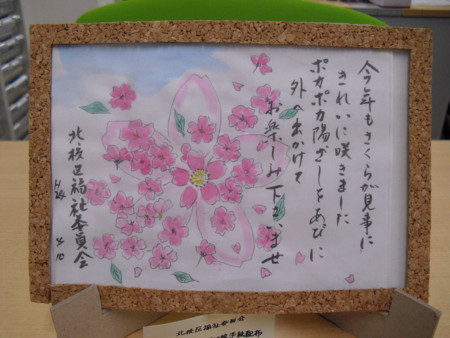 今年もさくらが見事に
きれいに咲きました
ポカポカ陽ざしをあびに
外へ出かけて
お楽しみ下さいませ
北板区福祉委員会
4/10